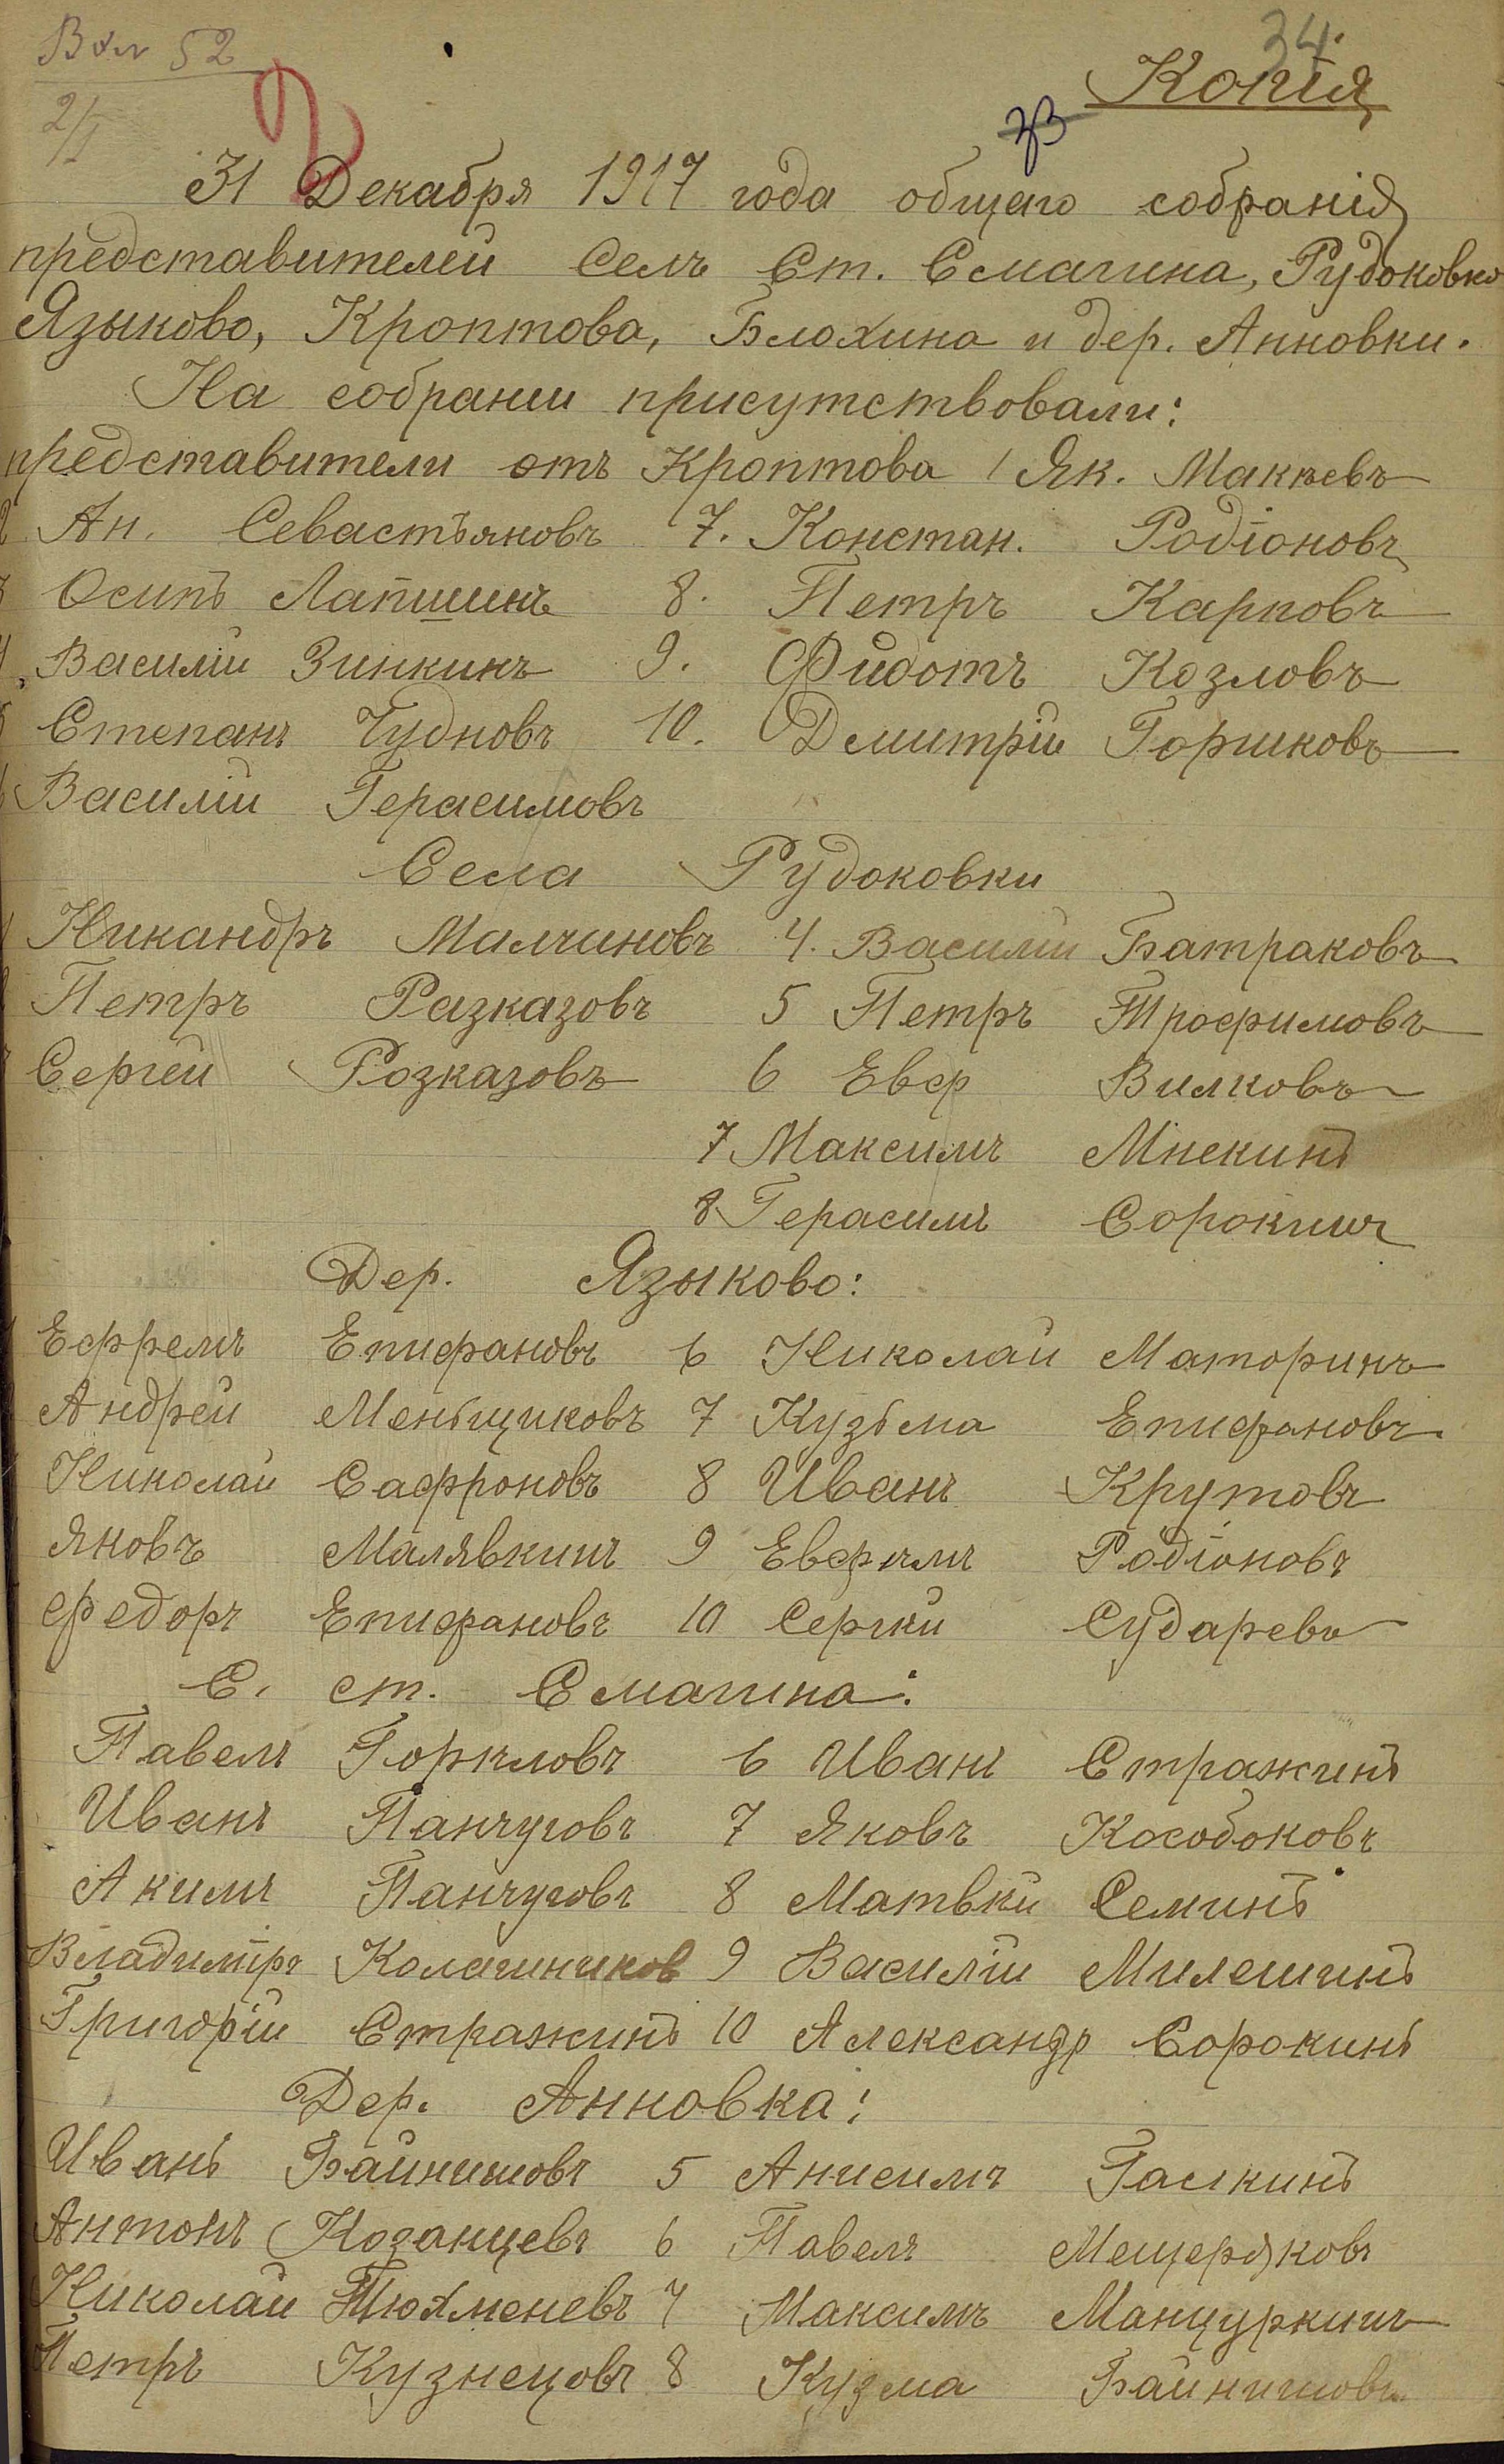 Вхл 52
2/I
34.
Копія
33
31 Декабря 1917 года общаго собранія
представителей селъ Ст. Смагина, Рудоковко
Языково, Кроптова, Блохина и дер. Анновки.
На собрании присутствовали:
представители отъ Кроптова 1 Як. Макѣевъ
2 Ан. Севастъяновъ 7. Констан. Родіоновъ
3 Осипъ Лапшинъ 8. Петръ Карповъ
4 Василій Зинкинъ 9. Фидотъ Козловъ
5 Степанъ Чудновъ 10. Дмитрій Горшковъ
6 Василій Герасимовъ
Села Рудоковки
Никандръ Малчиновъ 4. Василій Батраковъ
Петръ Разказовъ 5 Петръ Трофимовъ
Сергей Розказовъ 6 Евф Вилковъ
7 Максимъ Мнекинъ
8 Герасимъ Сорокинъ
Дер. Языково:
Ефремъ Епифановъ 6 Николай Маторинъ
Андрей Менъщиковъ 7 Кузьма Епифановъ
Николай Сафроновъ 8 Иванъ Крутовъ
Яковъ Малявкинъ 9 Евфимъ Родіоновъ
Федоръ Епифановъ 10 Сергѣй Сударевъ
С. ст. Смагина:
Павелъ Горѣловъ 6 Иванъ Стражинъ
Иванъ Панчуговъ 7 Яковъ Кособоковъ
Акимъ Панчуговъ 8 Матвѣй Семинъ
Владиміръ Колашников 9 Василій Милешинъ
Григорій Стражинъ 10 Александр Сорокинъ
Дер. Анновка:
Иванъ Байнишовъ 5 Анисимъ Гаскинъ
Антонъ Козанцевъ 6 Павелъ Мещеряковъ
Николай Тюхменевъ 7 Максимъ Манцуркинъ
Петръ Кузнецовъ 8 Кузма Байнишовъ